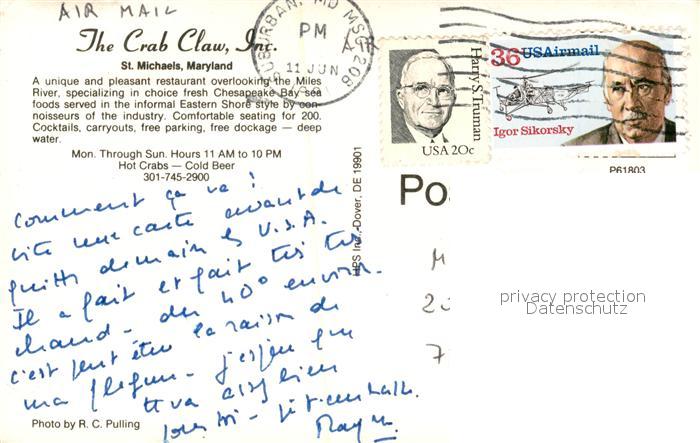 AIR MAIL
The Crab Claw, Inc.
St. Michaels, Maryland
A unique and pleasant restaurant overlooking the Miles
River, specializing in choice fresh Chesapeake Bay sea
foods served in the informal Eastern Shore style by con-
noisseurs of the industry. Comfortable seating for 200.
Cocktails, carryouts, free parking, free dockage — deep
water.
Mon. Through Sun. Hours 11 AM to 10 PM
Hot Crabs — Cold Beer
301-745-2900
SUBURBAN, MD MSC 208
PM
11 JUN
Harry S. Truman
USA 20c
36 USAirmail
Igor Sikorsky
P61803
HPS Inc., Dover, DE 19901
Po
comment ça va !
vite une carte avant de
quitter demain les U.S.A.
Il a fait et fait très très
chaud - des 40° environ.
c'est peut être la raison de
ma flegme - j'espère que
tt va bien
pour toi - je t'embrasse.
M
2
7
privacy protection
Datenschutz
Photo by R. C. Pulling